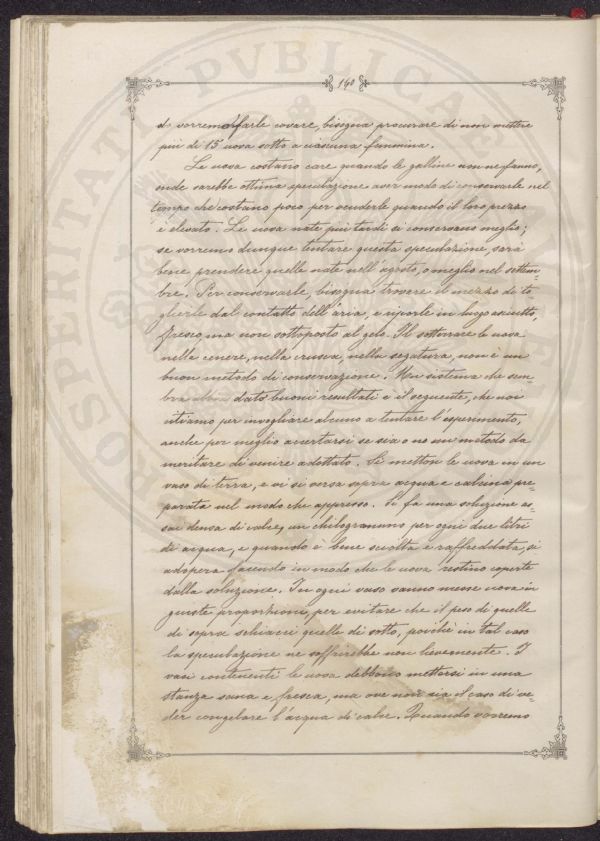 140
do vorremo farle covare, bisogna procurare di non mettere
più di 15 uova sotto a ciascuna femmina.
Le uova costano care quando le galline non ne fanno,
onde sarebbe ottima speculazione aver modo di conservarle nel
tempo che costano poco per venderle quando il loro prezzo
è elevato. Le uova nate più tardi si conservano meglio;
se vorremo dunque tentare questa speculazione, sarà
bene prendere quelle nate nell'agosto, o meglio nel settem=
bre. Per conservarle, bisogna trovare il mezzo di to=
glierle dal contatto dell'aria, e riporle in luogo asciutto,
fresco, ma non sottoposto al gelo. Il sotterrare le uova
nella cenere, nella crusca, nella segatura, non è un
buon metodo di conservazione. Un sistema che sem=
bra abbia dato buoni resultati è il seguente, che noi
citiamo per invogliare alcuno a tentare l'esperimento,
anche per meglio accertarsi se sia o no un metodo da
meritare di venire adottato. Si metton le uova in un
vaso di terra, e vi si versa sopra acqua e calcina pre=
parata nel modo che appresso. Si fa una soluzione as=
sai densa di calce, un chilogrammo per ogni due litri
di acqua, e quando è bene sciolta e raffreddata, si
adopera facendo in modo che le uova restino coperte
dalla soluzione. In ogni vaso vanno messe uova in
giuste proporzioni, per evitare che il peso di quelle
di sopra schiacci quelle di sotto, poichè in tal caso
la speculazione ne soffrirebbe non lievemente. I
vasi contenenti le uova debbono mettersi in una
stanza sana e fresca, ma ove non sia il caso di ve=
der congelare l'acqua di calce. Quando vorremo